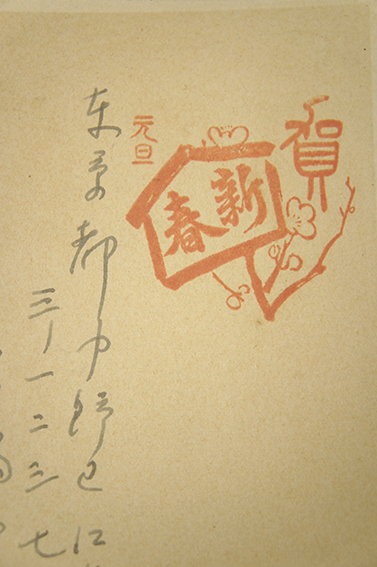 賀
新春
元旦
東京都中野区江
三ー一二三七